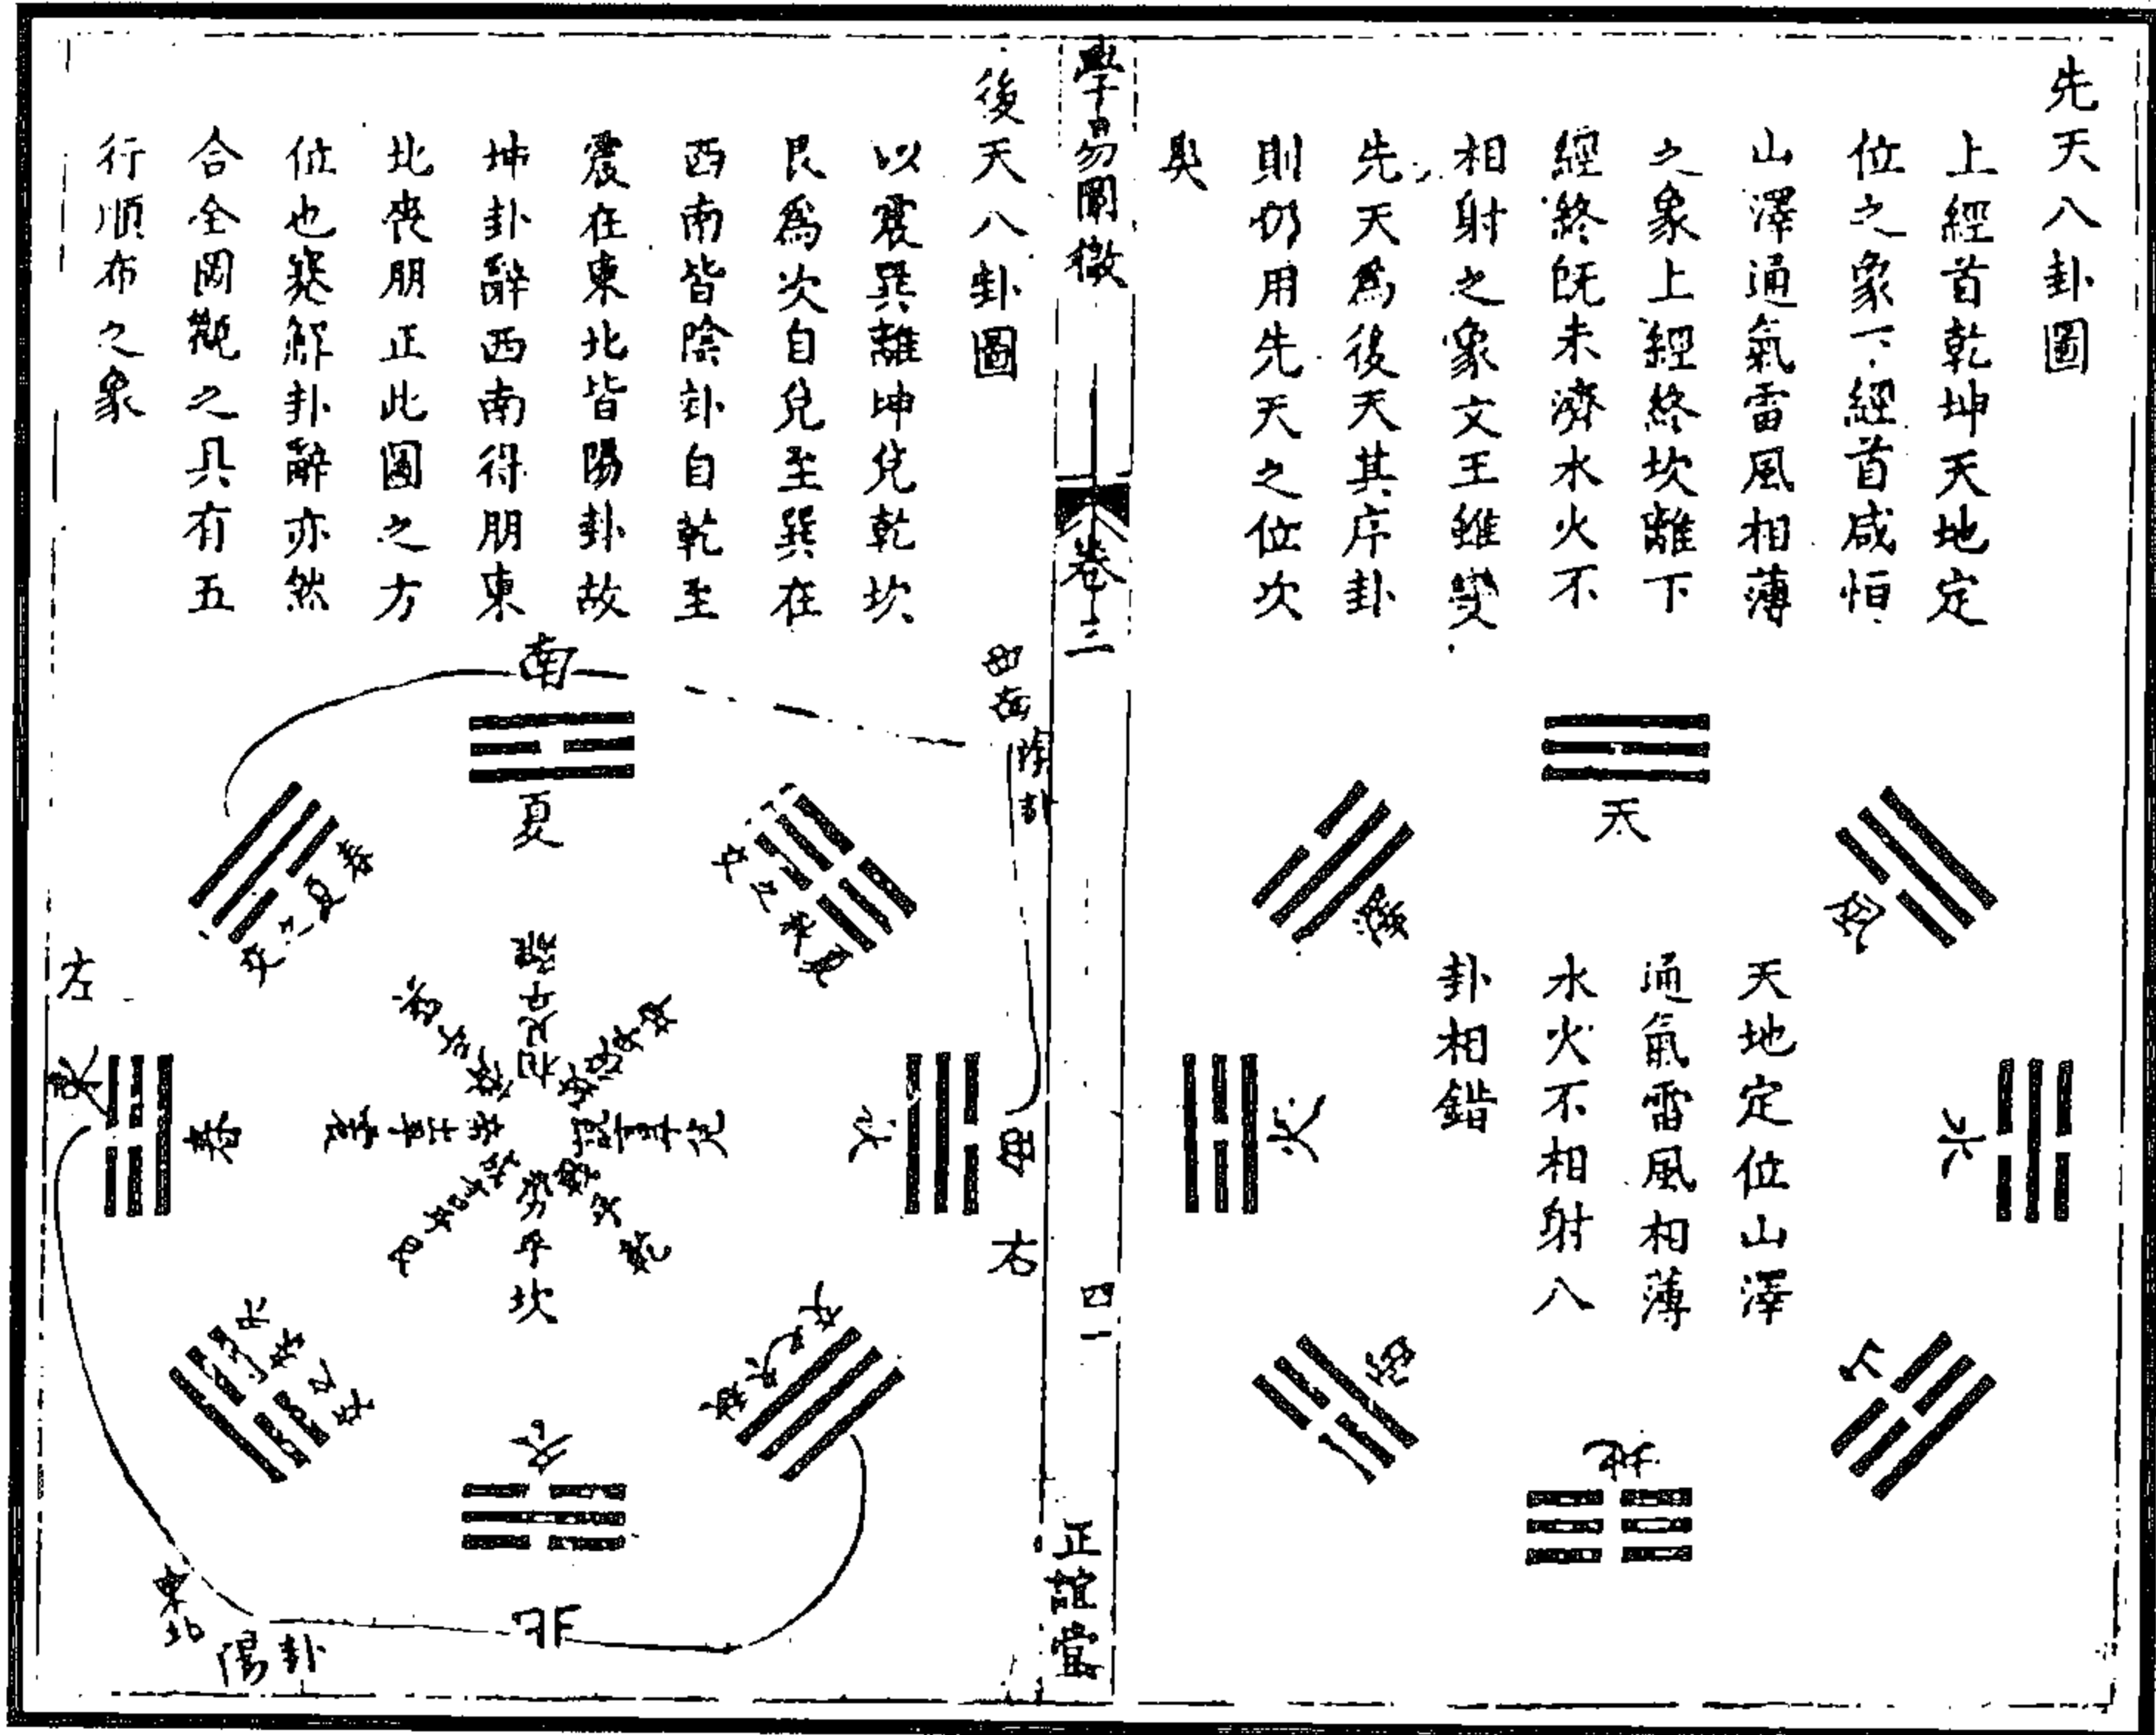 先天八卦圖
上經首乾坤天地定
位之象下經首咸恒
山澤通氣雷風相薄
之象上經終坎離下
經終旣未濟水火不
相射之象文王雖變
先天爲後天其序卦
則仍用先天之位次
與
天
風
水
山
地
雷
火
澤
天地定位山澤
通氣雷風相薄
水火不相射八
卦相錯
學易闡微
卷三
四一
正誼堂
後天八卦圖
以震巽離坤兌乾坎
艮爲次自兌至巽在
西南皆陰卦自乾至
震在東北皆陽卦故
坤卦辭西南得朋東
北喪朋正此圖之方
位也蹇解卦辭亦然
合全圖觀之具有五
行順布之象
南
夏
西南
陰卦
西
右
秋
北
冬
東北
陽卦
左
東
春
勞乎坎